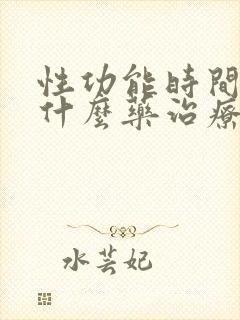 性功能時間
什麼藥治療
水芸妃